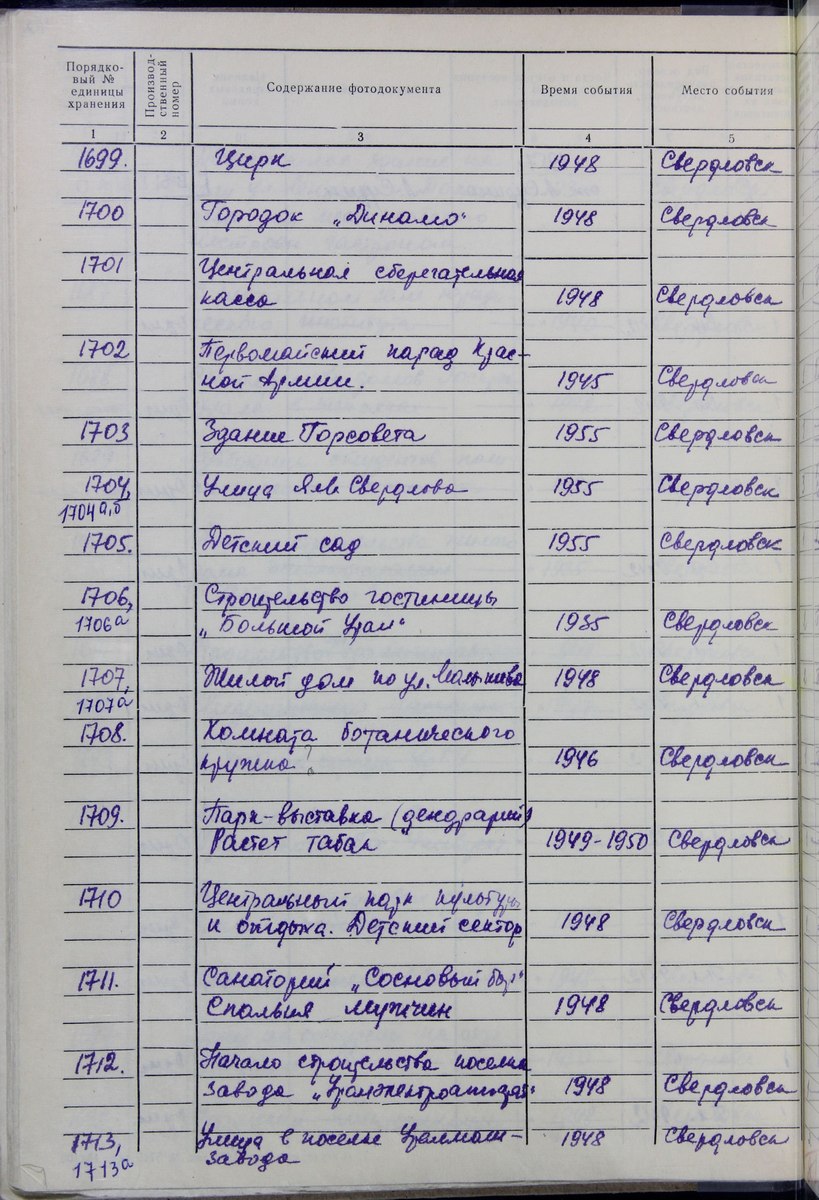 Порядко-
вый №
единицы
хранения
Производ-
ственный
номер
Содержание фотодокумента
Время события
Место события
1 2 3 4 5
1699. Цирк 1948 Свердловск
1700 Городок „Динамо" 1948 Свердловск
1701 Центральная сберегательная
касса 1948 Свердловск
1702 Первомайский парад Крас-
ной Армии. 1945 Свердловск
1703 Здание Горсовета 1955 Свердловск
1704, Улица Я.М. Свердлова 1955 Свердловск
1704а,б
1705. Детский сад 1955 Свердловск
1706, Строительство гостиницы
1706а „Большой Урал" 1935 Свердловск
1707, Жилой дом по ул. Малышева 1948 Свердловск
1707а
1708. Комната ботанического
кружка ? 1946 Свердловск
1709. Парк-выставка (дендрарий)
Растет табак 1949-1950 Свердловск
1710 Центральный парк культуры
и отдыха. Детский сектор 1948 Свердловск
1711. Санаторий „Сосновый бор"
Спальня мужчин 1948 Свердловск
1712. Начало строительства поселка
завода „Уралэлектроаппарат" 1948 Свердловск
1713, Улица в поселке Уралмаш- 1948 Свердловск
1713а завода